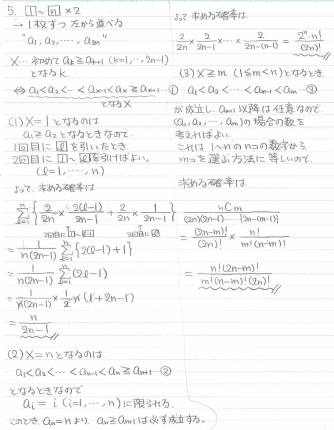 5. 1~n ×2
→ 1枚ずつ 左から並べる
"a₁, a₂, …, a₂ₙ"
X… 初めて aₖ ≧ aₖ₊₁ (k=1, …, 2n-1)
となるk.
⇔ a₁<a₂<…<aₓ₋₁<aₓ≧aₓ₊₁ …①
となるX
(1) X=1 となるのは
a₁≧a₂ となるときなので.
1回目に l を引いたとき.
2回目に 1~l を引けばよい。
(l=1, …, n)
よって, 求める確率は
Σ{ 2/2n × 2(l-1)/(2n-1) + 2/2n × 1/(2n-1) }
= 1/n(2n-1) Σ{2(l-1)+1}
= 1/n(2n-1) Σ(2l-1)
= 1/n(2n-1) × 1/2 n (1+2n-1)
= n/(2n-1)
(2) X=n となるのは
a₁<a₂<…<aₙ₋₁<aₙ≧aₙ₊₁ …②
となるときなので
aᵢ = i (i=1, …, n) に限られる.
このとき aₙ=n より aₙ≧aₙ₊₁ は必ず成立する。
よって 求める確率は
2/2n × 2/(2n-1) × … × 2/(2n-(n-1)) = 2ⁿ·n!/(2n)!
(3) X≧m (1≦m<n) となるとき,
a₁<a₂<…<aₘ₋₁<aₘ …③
が成立し. aₘ₊₁ 以降は任意なので.
(a₁, a₂, …, aₘ) の場合の数を
考えればよい
これは 1~n の nつの数字から
mつを選ぶ方法に等しいので.
求める確率は
ₙCₘ/(2n)(2n-1)…{2n-(m-1)}
= (2n-m)!/(2n)! × n!/m!(n-m)!
= n!(2n-m)!/m!(n-m)!(2n)!